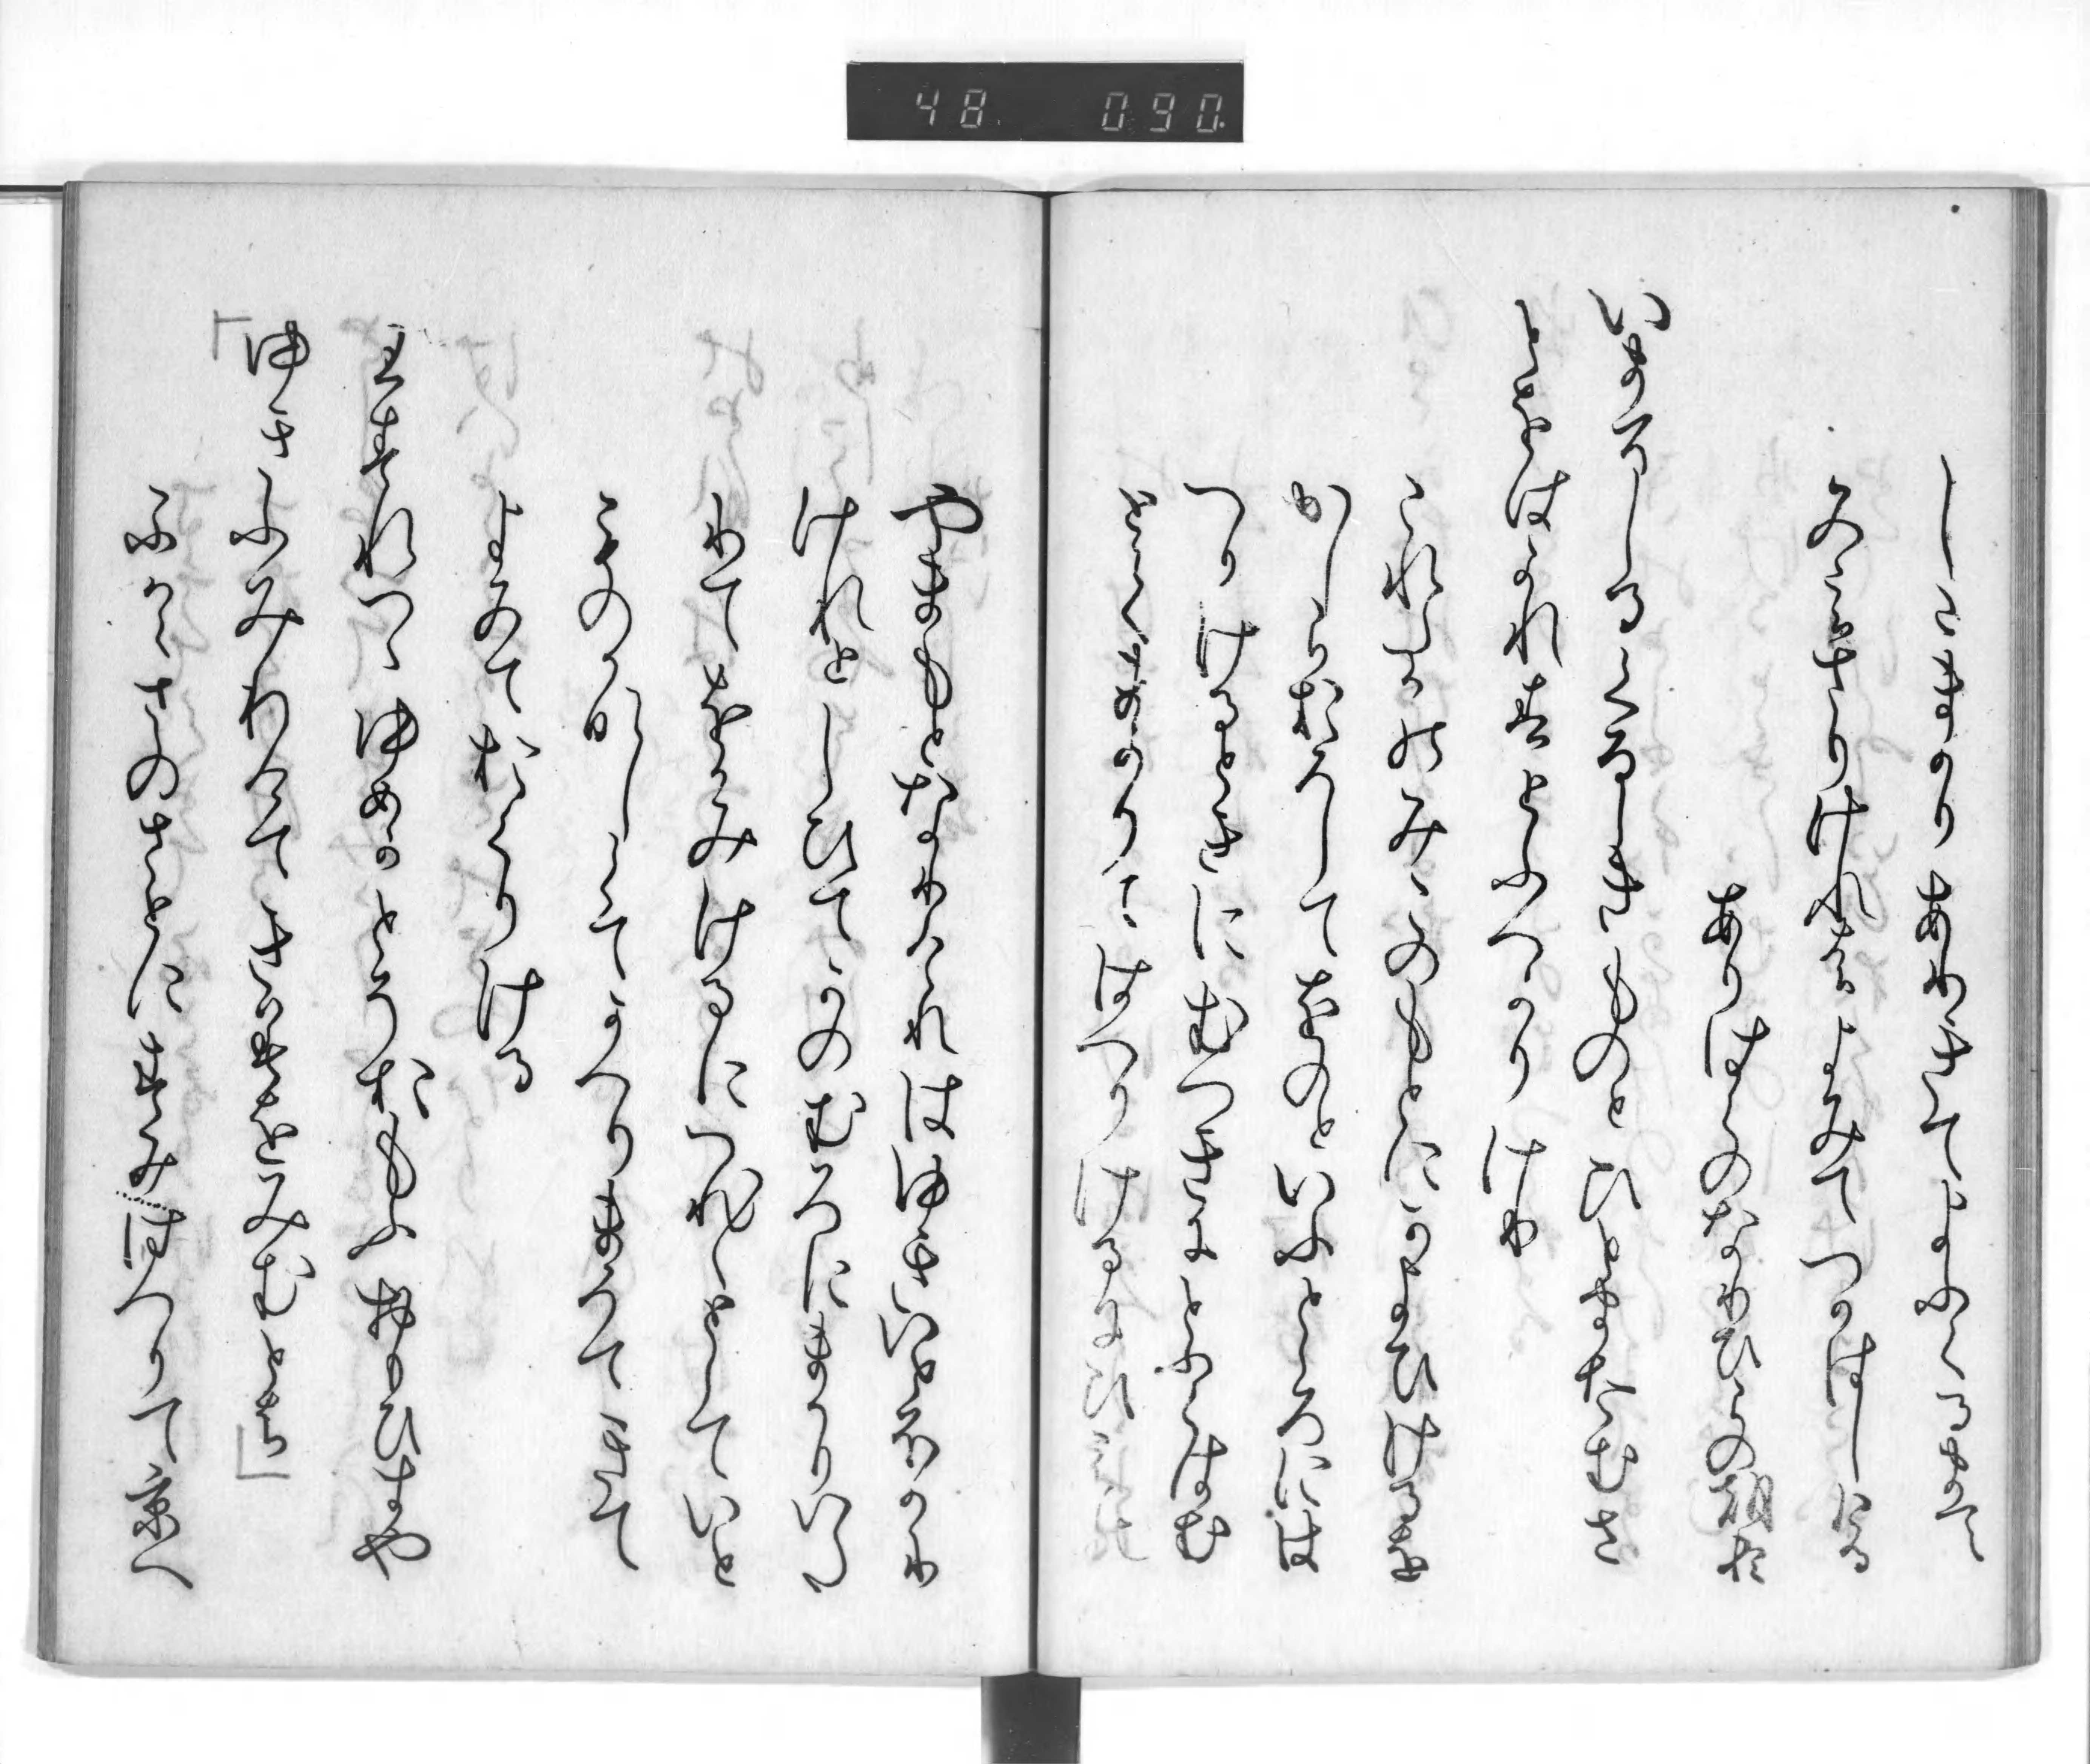 しこにまかりありきてよふくるまて
みえさりけれはよみてつかはしける
ありはらのなりひらの朝臣
いまそしるくるしきものとひとまたむさ
とをはかれすとふへかりけり
これたかのみこのもとにかよひけるを
かしらおろしてをのといふところには
へりけるときにむつきにとふらはむ
とてまかりはへりけるにひえの
やまのもとなりけれはゆきいとふかかり
けれとしひてかのむろにまかりいた
りてをかみけるにつれ〱としていと
ものかなしくてかへりまうてきて
よみておくりける
わすれつゝゆめかとそおもふおもひきや
ゆきふみわけてきみをみむとは
ふかくさのさとにすみはへりて京へ